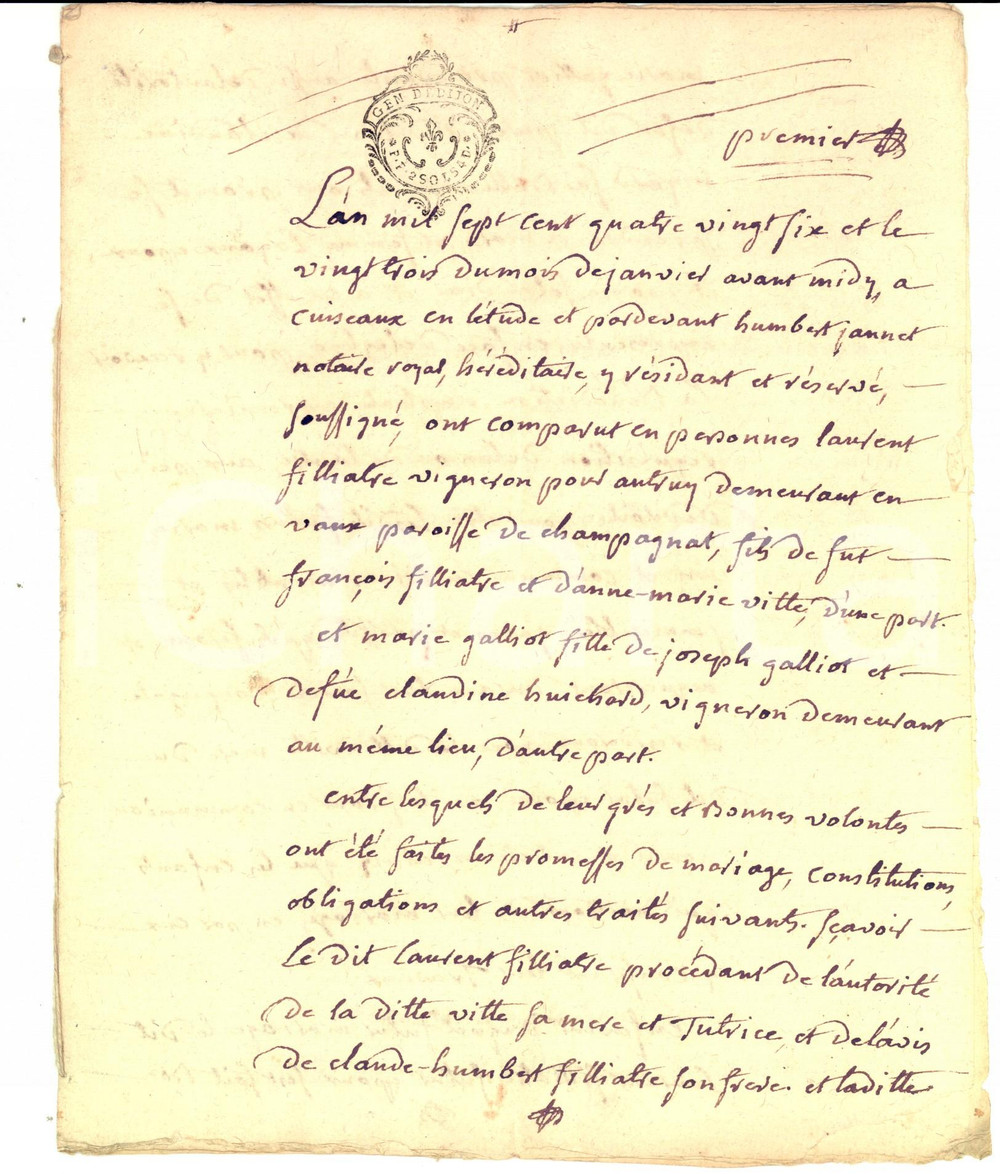 GEN. DE DIJON
2 SOLS 4 D.
premier
L'an mil sept cent quatre vingt six et le
vingt trois du mois de janvier avant midy, a
cuiseaux en l'étude et pardevant humbert jannet
notaire royal, héréditaire, y résidant et réservé,
soussigné, ont comparut en personnes laurent
filliatre vigneron pour autruy demeurant en
vaux paroisse de champagnat, fils de fut
françois filliatre et d'anne-marie ville, d'une part.
et marie galliot fille de joseph galliot et
defüe claudine huichard, vigneron demeurant
au même lieu, d'autre part.
entre lesquels de leur grés et bonnes volontes
ont été faites les promesses de mariage, constitutions,
obligations et autres traités suivants. sçavoir
Le dit laurent filliatre procédant de l'autorité
de la ditte ville sa mere et Tutrice, et de l'avis
de claude-humbert filliatre son frere. et laditte